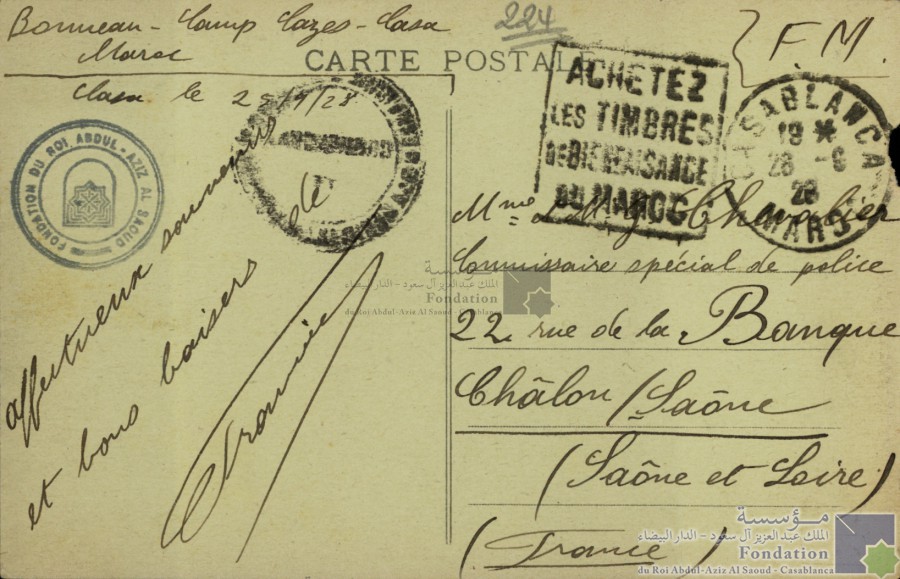 Bonneau - Camp Cazes - Casa
Maroc
224
F.M.
CARTE POSTALE
Casa le 28/9/28
affectueux souvenirs
et bons baisers
de
FONDATION DU ROI ABDUL-AZIZ AL SAOUD
ACHETEZ
LES TIMBRES
DE BIENFAISANCE
DU MAROC
CASABLANCA
19 *
28 - 9
28
MAROC
Mme Chevalier
Commissaire spécial de police
22 rue de la Banque
Châlon / Saône
(Saône et Loire)
(France)
مؤسسة
الملك عبد العزيز آل سعود - الدار البيضاء
Fondation
du Roi Abdul-Aziz Al Saoud - Casablanca
مؤسسة
الملك عبد العزيز آل سعود - الدار البيضاء
Fondation
du Roi Abdul-Aziz Al Saoud - Casablanca